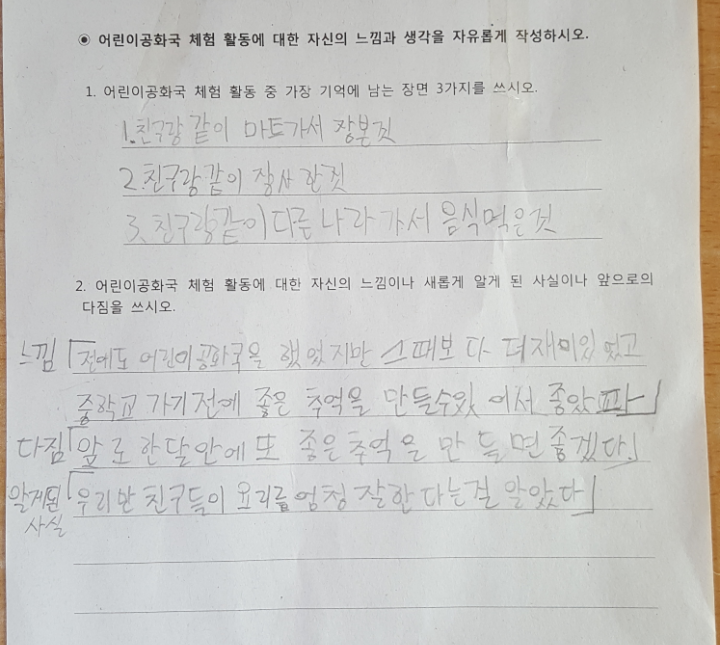 ◉ 어린이공화국 체험 활동에 대한 자신의 느낌과 생각을 자유롭게 작성하시오.
1. 어린이공화국 체험 활동 중 가장 기억에 남는 장면 3가지를 쓰시오.
1. 친구랑 같이 마트가서 장본것
2. 친구랑 같이 장사 한것
3. 친구랑같이 다른 나라 가서 음식먹은것
2. 어린이공화국 체험 활동에 대한 자신의 느낌이나 새롭게 알게 된 사실이나 앞으로의
다짐을 쓰시오.
느낌「전에도 어린이공화국을 했었지만 그때보다 더재미있었고
중학교 가기전에 좋은 추억을 만들수있어서 좋았다」
다짐「앞로 한달안에 또 좋은추억을 만들면 좋겠다」
알게된 사실「우리반 친구들이 요리를 엄청 잘한다는걸 알았다」